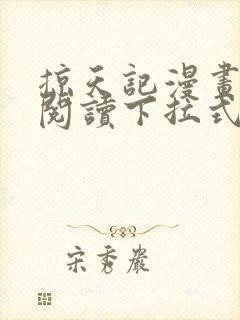 掠天記漫畫
閱讀下拉式
宋秀巖